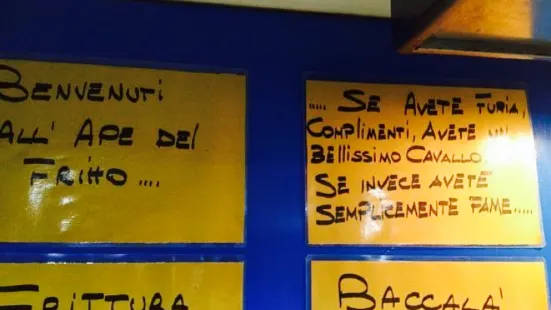 BENVENUTI
ALL' APE DEL
FRITTO ....
.... SE AVETE FURIA,
COMPLIMENTI, AVETE UN
BELLISSIMO CAVALLO.
SE INVECE AVETE
SEMPLICEMENTE FAME.....
FRITTURA
BACCALA'